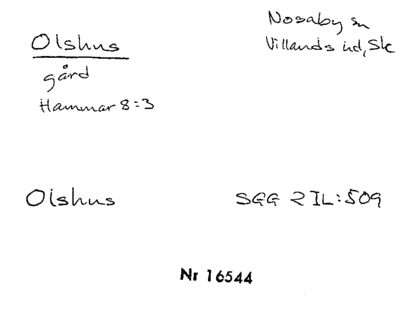 Olshus
gård
Hammar 8:3
Nosaby sn
Villands hd, Sk
Olshus
SGG 2 IL:509
Nr 16544